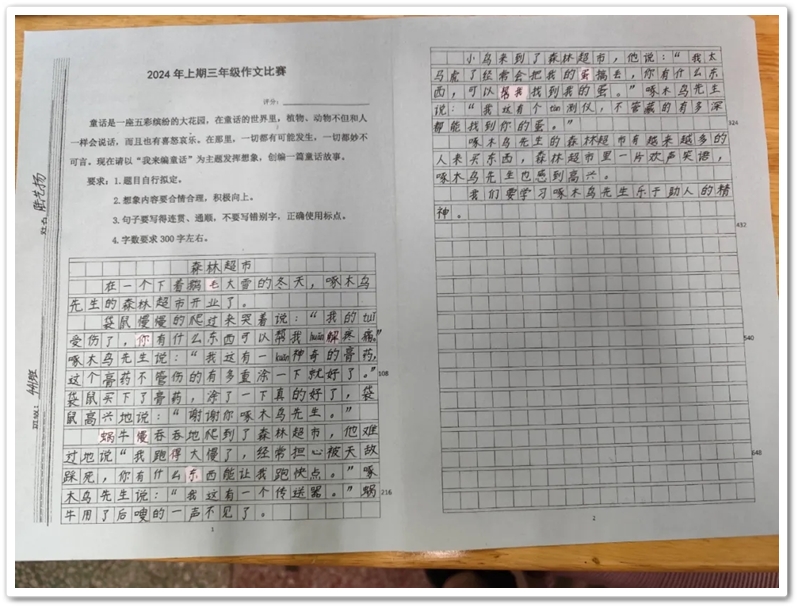 2024年上期三年级作文比赛
评分：
童话是一座五彩缤纷的大花园，在童话的世界里，植物、动物不但和人
一样会说话，而且也有喜怒哀乐。在那里，一切都有可能发生，一切都妙不
可言。现在请以“我来编童话”为主题发挥想象，创编一篇童话故事。
要求：1.题目自行拟定。
2.想象内容要合情合理，积极向上。
3.句子要写得连贯、通顺，不要写错别字，正确使用标点。
4.字数要求300字左右。
森林超市
在一个下着鹅毛大雪的冬天，啄木鸟
先生的森林超市开业了。
袋鼠慢慢的爬过来哭着说：“我的tuǐ
受伤了，你有什么东西可以帮我huǎn解疼痛。”
啄木鸟先生说：“我这有一kuǎn神奇的膏药，
这个膏药不管伤的有多重涂一下就好了。”
108
袋鼠买下了膏药，涂了一下真的好了，袋
鼠高兴地说：“谢谢你啄木鸟先生。”
蜗牛慢吞吞地爬到了森林超市，他难
过地说“我跑得太慢了，经常担心被天敌
踩死，你有什么东西能让我跑快点。”啄
木鸟先生说：“我这有一个传送器。”蜗
216
牛用了后嗖的一声不见了。
1
小鸟来到了森林超市，他说：“我太
马虎了经常会把我的蛋搞丢，你有什么东
西，可以帮我找到我的蛋。”啄木鸟先生
说：“我这有个tàn测仪，不管藏的有多深
324
都能找到你的蛋。”
啄木鸟先生的森林超市有越来越多的
人来买东西，森林超市里一片欢声笑语，
啄木鸟先生也感到高兴。
我们要学习啄木鸟先生乐于助人的精
神。
432
540
648
2